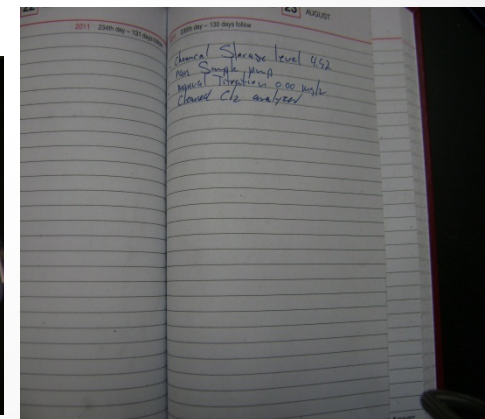 22
2011 234th day – 131 days follow
23 AUGUST
235th day – 130 days follow
Chemical Storage level 452
Sample pump
Manual Titration 0.00 mg/L
Cleaned Cl2 analyzer